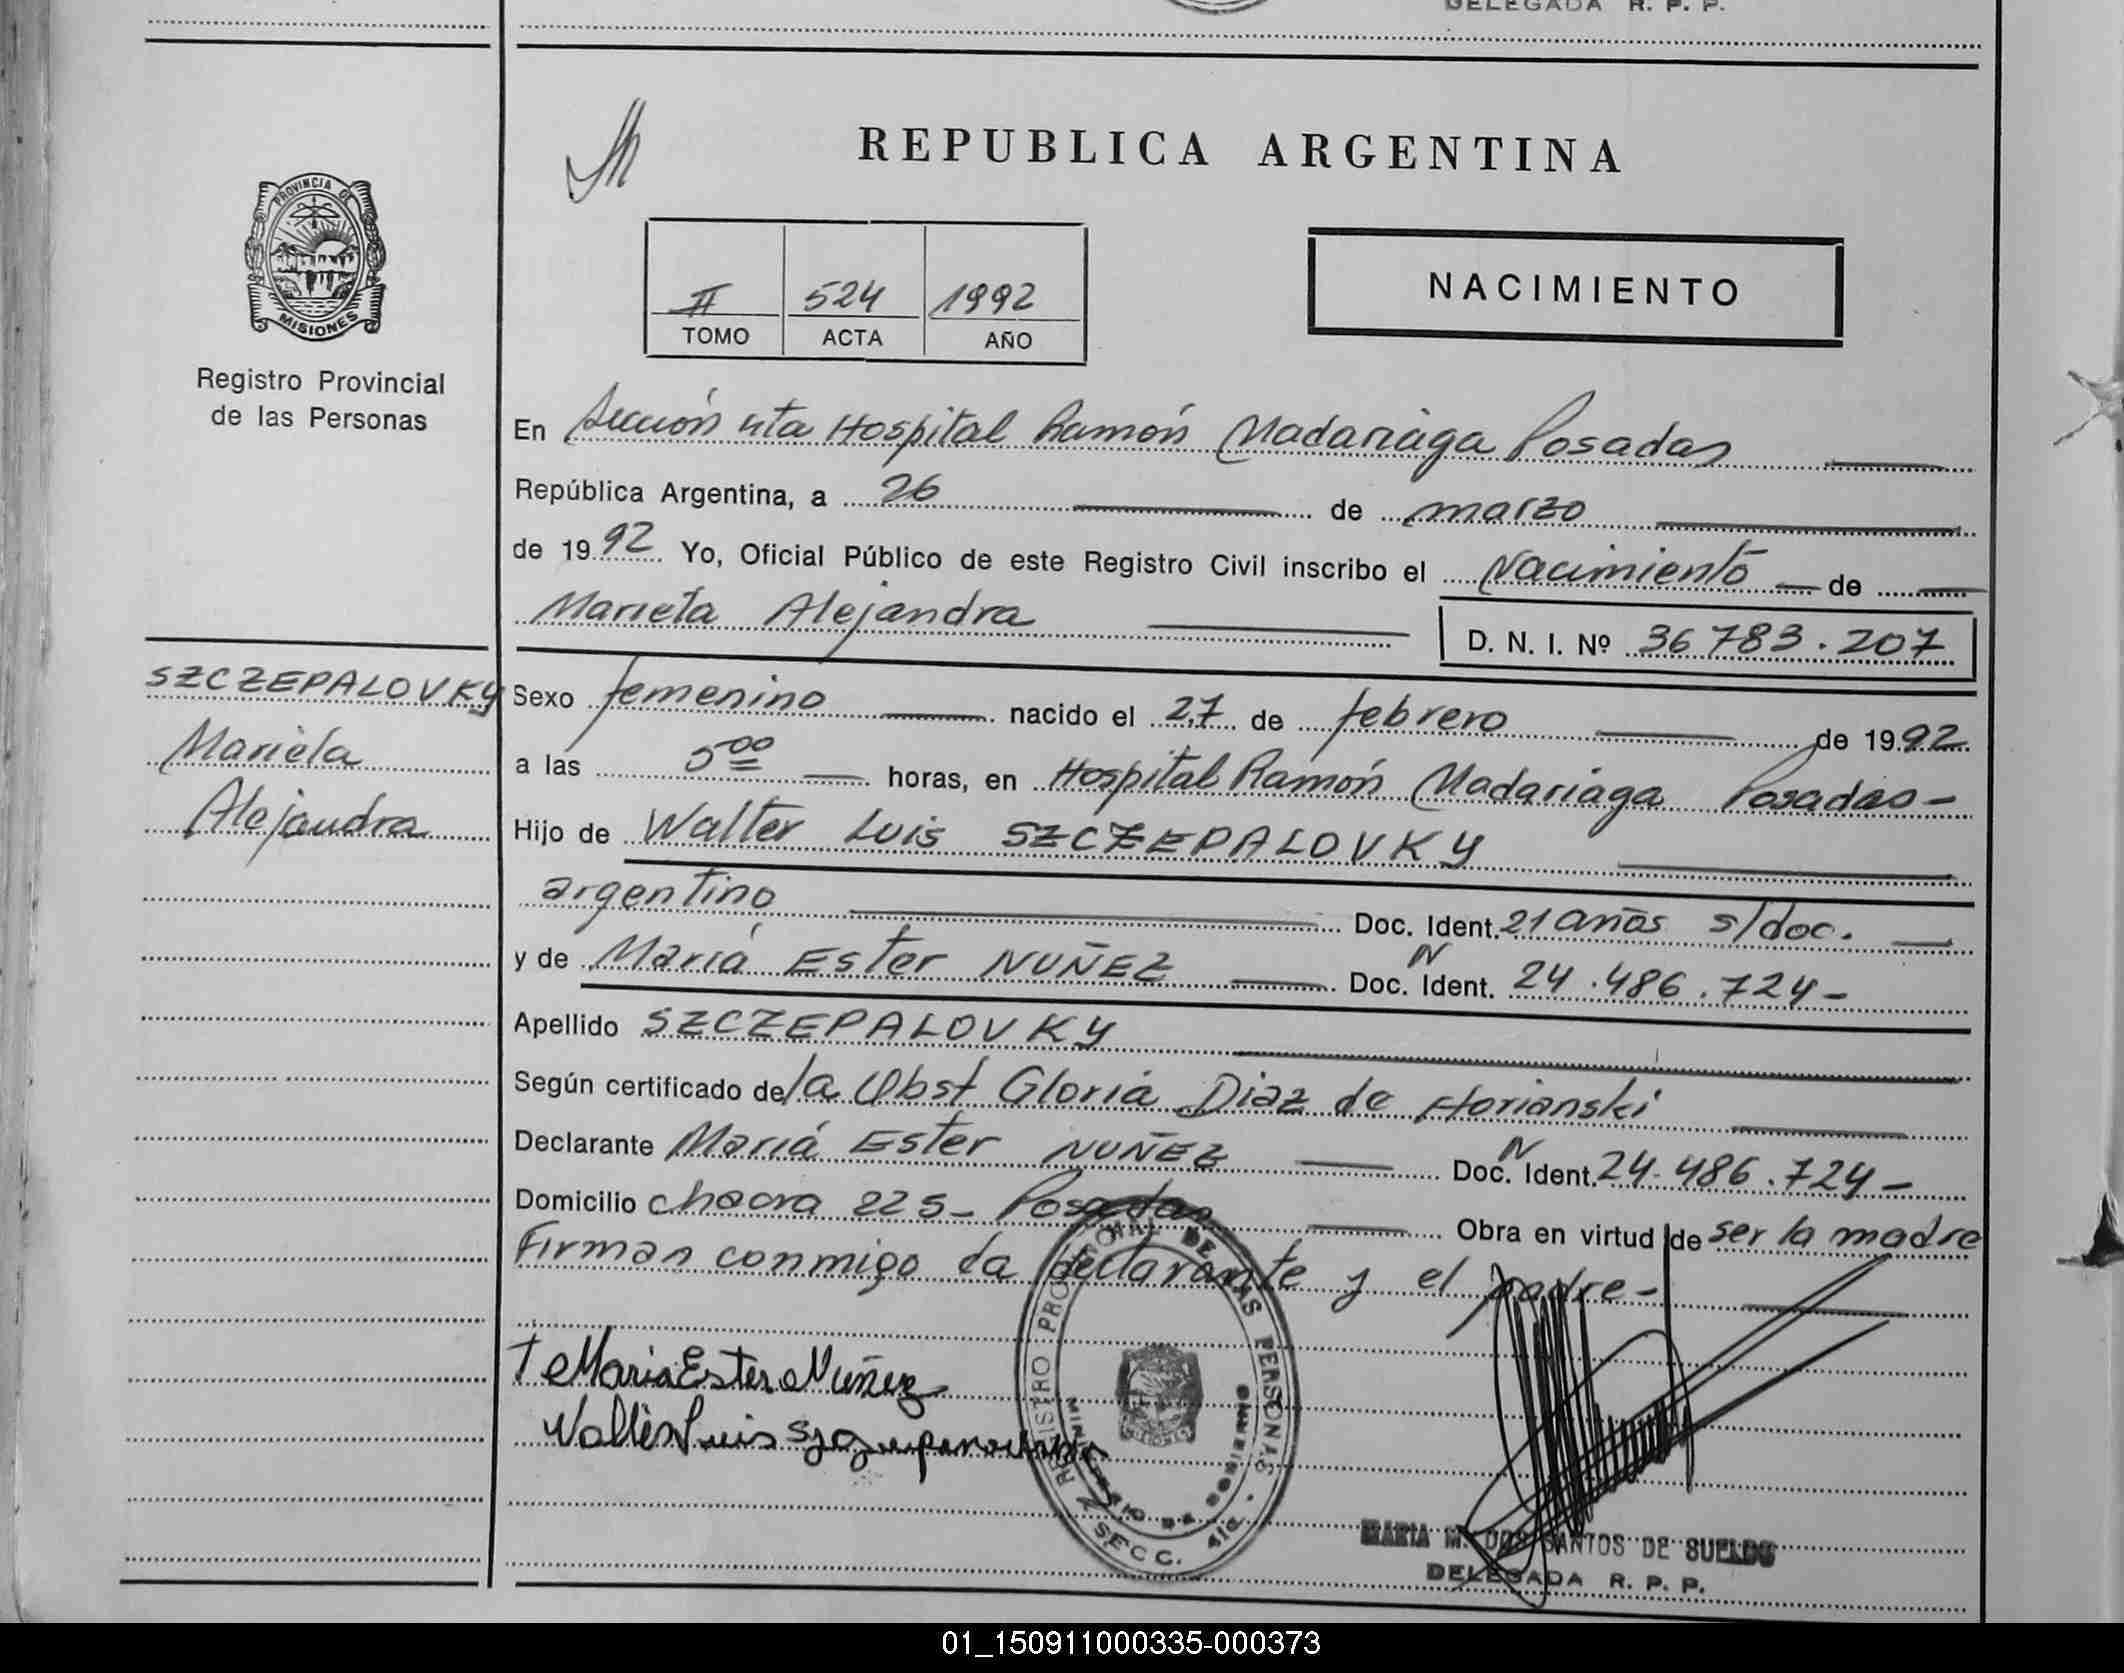 DELEGADA R. P. P.
REPUBLICA ARGENTINA
PROVINCIA DE
MISIONES
Registro Provincial
de las Personas
II 524 1992
TOMO ACTA AÑO
NACIMIENTO
En Sección 4ta Hospital Ramón Madariaga Posadas
República Argentina, a 26 de marzo
de 1992 Yo, Oficial Público de este Registro Civil inscribo el Nacimiento de
Mariela Alejandra D. N. I. Nº 36783.207
SZCZEPALOVKY
Mariela
Alejandra
Sexo femenino nacido el 27 de febrero de 1992
a las 5 00 horas, en Hospital Ramón Madariaga Posadas-
Hijo de Walter Luis SZCZEPALOVKY
argentino Doc. Ident. 21 años s/doc.
y de María Ester NUÑEZ Doc. N Ident. 24.486.724-
Apellido SZCZEPALOVKY
Según certificado de la Obst Gloria Diaz de Horianski
Declarante María Ester NUÑEZ Doc. N Ident. 24.486.724-
Domicilio chacra 225- Posadas Obra en virtud de ser la madre
Firman conmigo la declarante y el padre-
María Ester Nuñez
Luis
REGISTRO PROVINCIAL DE LAS PERSONAS
SECC.
MARIA M. DOS SANTOS DE SUELDO
DELEGADA R. P. P.
01_150911000335-000373